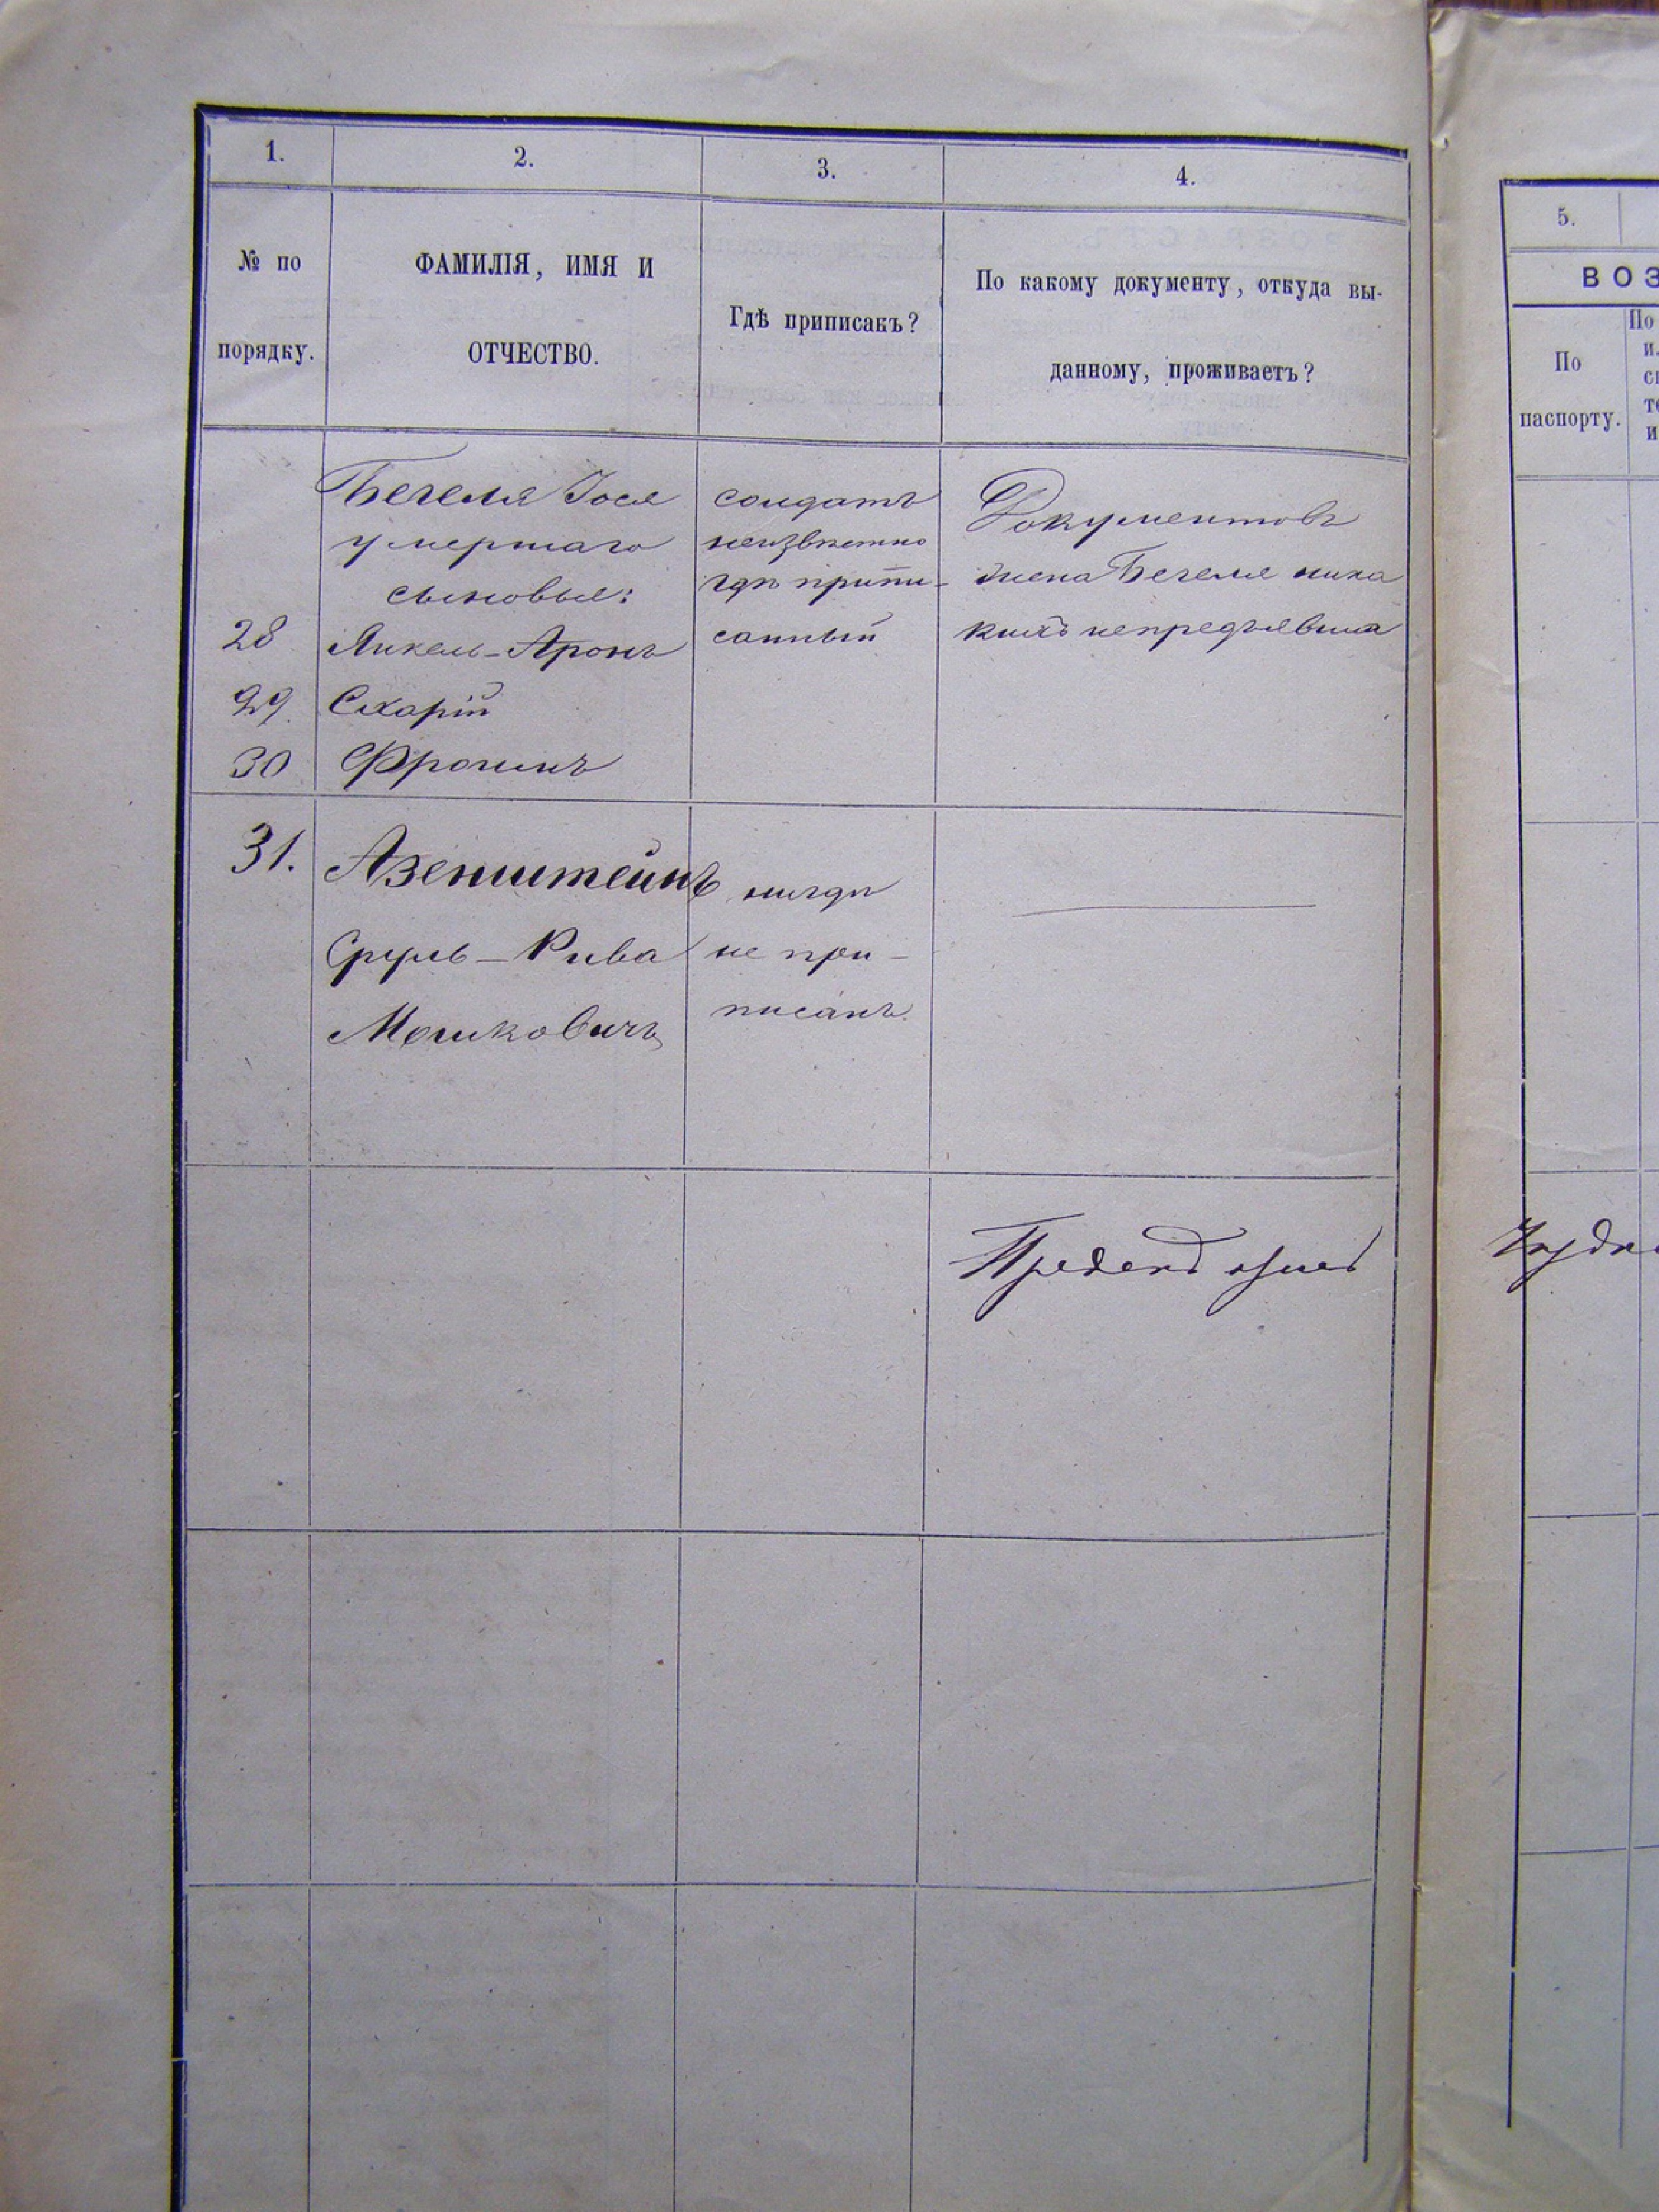 1.
2.
3.
4.
№ по
порядку.
ФАМИЛІЯ, ИМЯ И
ОТЧЕСТВО.
Гдѣ приписакъ?
По какому документу, откуда вы-
данному, проживаетъ?
Бегеля Іося
умершаго
сыновья:
28 Янкель-Аронъ
29. Схарій
30 Фроимъ
солдатъ
неизвѣстно
гдѣ припи-
санный
Документовъ
жена Бегеля ника
кихъ непредъявила
31. Азенштейнъ
Сруль-Рива
Мошковичъ
нигдѣ
не при-
писанъ
5.
ВОЗ
По
паспорту.
По